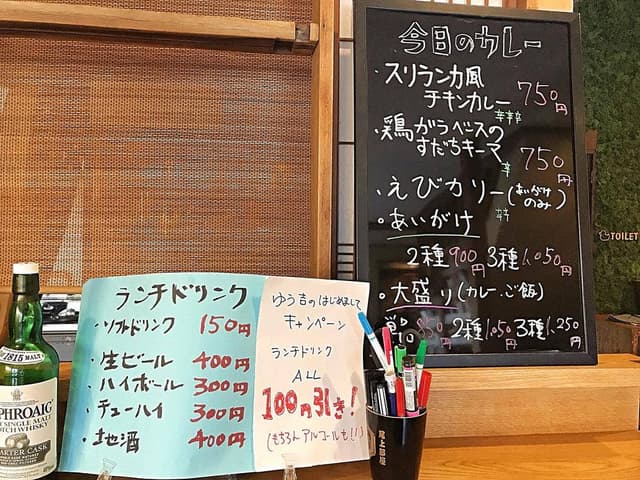 今日のカレー
・スリランカ風
チキンカレー 750円
辛辛辛
・鶏がらベースの
すだちキーマ 750円
辛
・えびカリー(あいがけのみ)
辛辛
・あいがけ
2種900円 3種1,050円
・大盛り(カレー、ご飯)
単品 850円 2種1,050円 3種1,250円
TOILET
ランチドリンク
・ソフトドリンク 150円
・生ビール 400円
・ハイボール 300円
・チューハイ 300円
・地酒 400円
ゆう吉のはじめまして
キャンペーン
ランチドリンク
ALL
100円引き!
(もちろんアルコールも!!)
1815 MALT
PHROAIG
SINGLE MALT
SCOTCH WHISKY
ARTER CASK